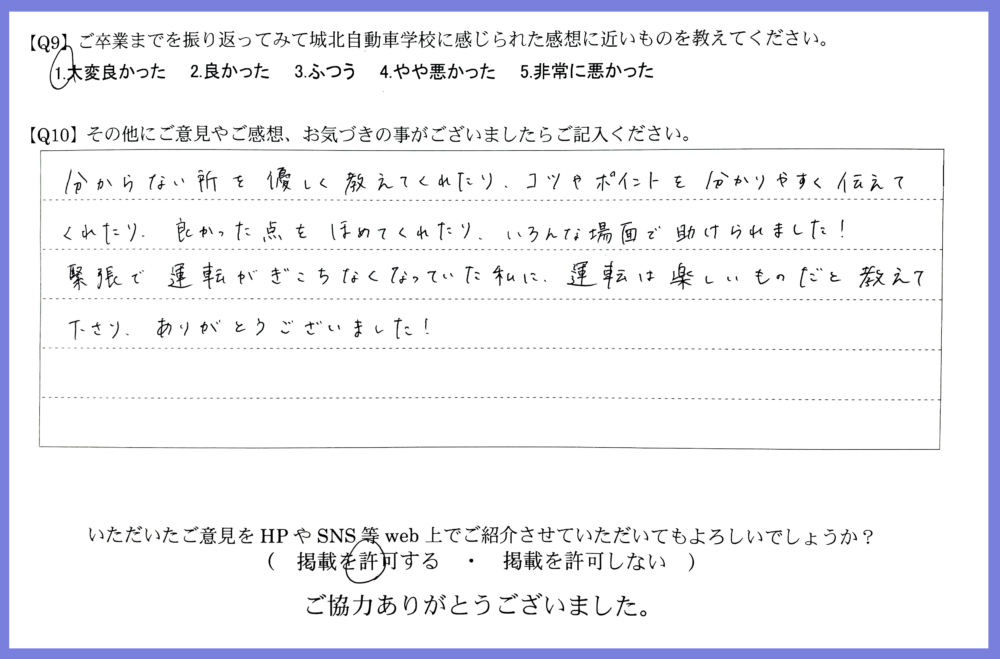 【Q9】ご卒業までを振り返ってみて城北自動車学校に感じられた感想に近いものを教えてください。
1.大変良かった　2.良かった　3.ふつう　4.やや悪かった　5.非常に悪かった
【Q10】その他にご意見やご感想、お気づきの事がございましたらご記入ください。
分からない所を優しく教えてくれたり、コツやポイントを分かりやすく伝えて
くれたり、良かった点をほめてくれたり、いろんな場面で助けられました!
緊張で運転がぎこちなくなっていた私に、運転は楽しいものだと教えて
下さり、ありがとうございました!
いただいたご意見をHPやSNS等web上でご紹介させていただいてもよろしいでしょうか？
(　掲載を許可する　・　掲載を許可しない　)
ご協力ありがとうございました。